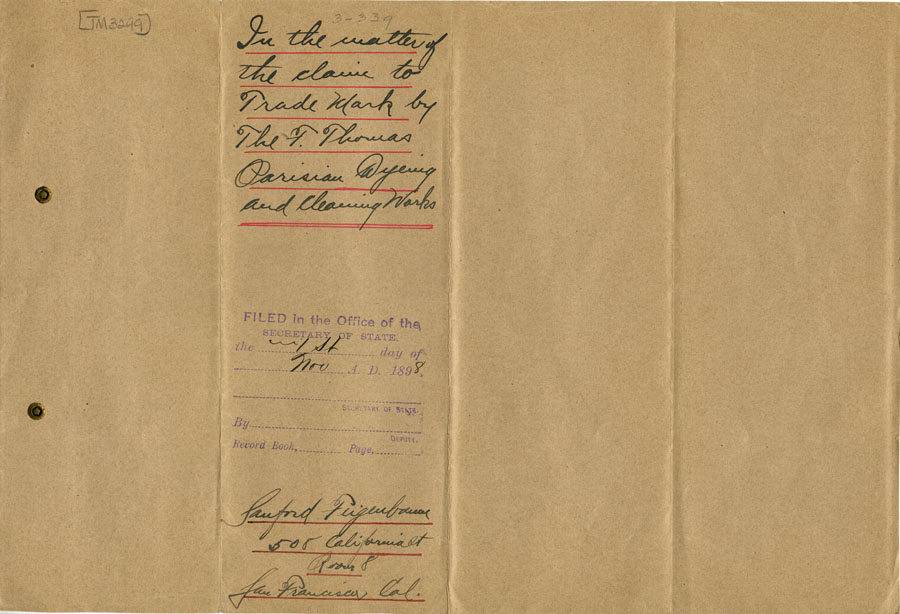 [TM3299]
3-339
In the matter of
the claim to
Trade Mark by
The F. Thomas
Parisian Dyeing
and Cleaning Works
FILED in the Office of the
SECRETARY OF STATE.
the 1st day of
Nov A. D. 1898
SECRETARY OF STATE.
By
DEPUTY.
Record Book, Page,
Sanford Feigenbaum
508 California St
Room 8
San Francisco, Cal.